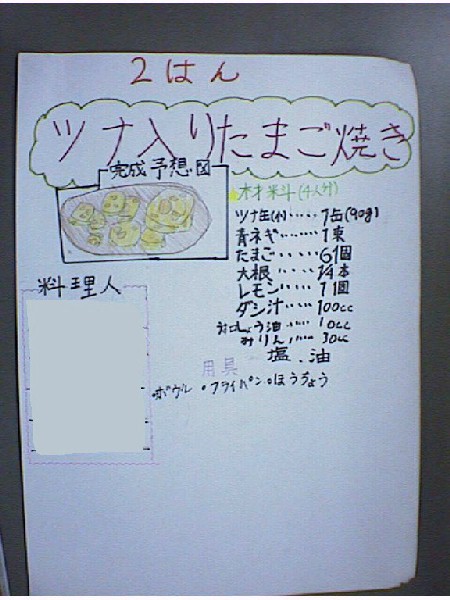 2はん
ツナ入りたまご焼き
完成予想図
材料(4人分)
ツナ缶(小)‥‥1缶(90g)
青ネギ‥‥‥1束
たまご‥‥‥6個
大根‥‥‥1/4本
レモン‥‥‥1個
ダシ汁‥‥‥100cc
しょう油‥‥10cc
みりん‥‥30cc
塩.油
料理人
用具
・ボウル・フライパン・ほうちょう